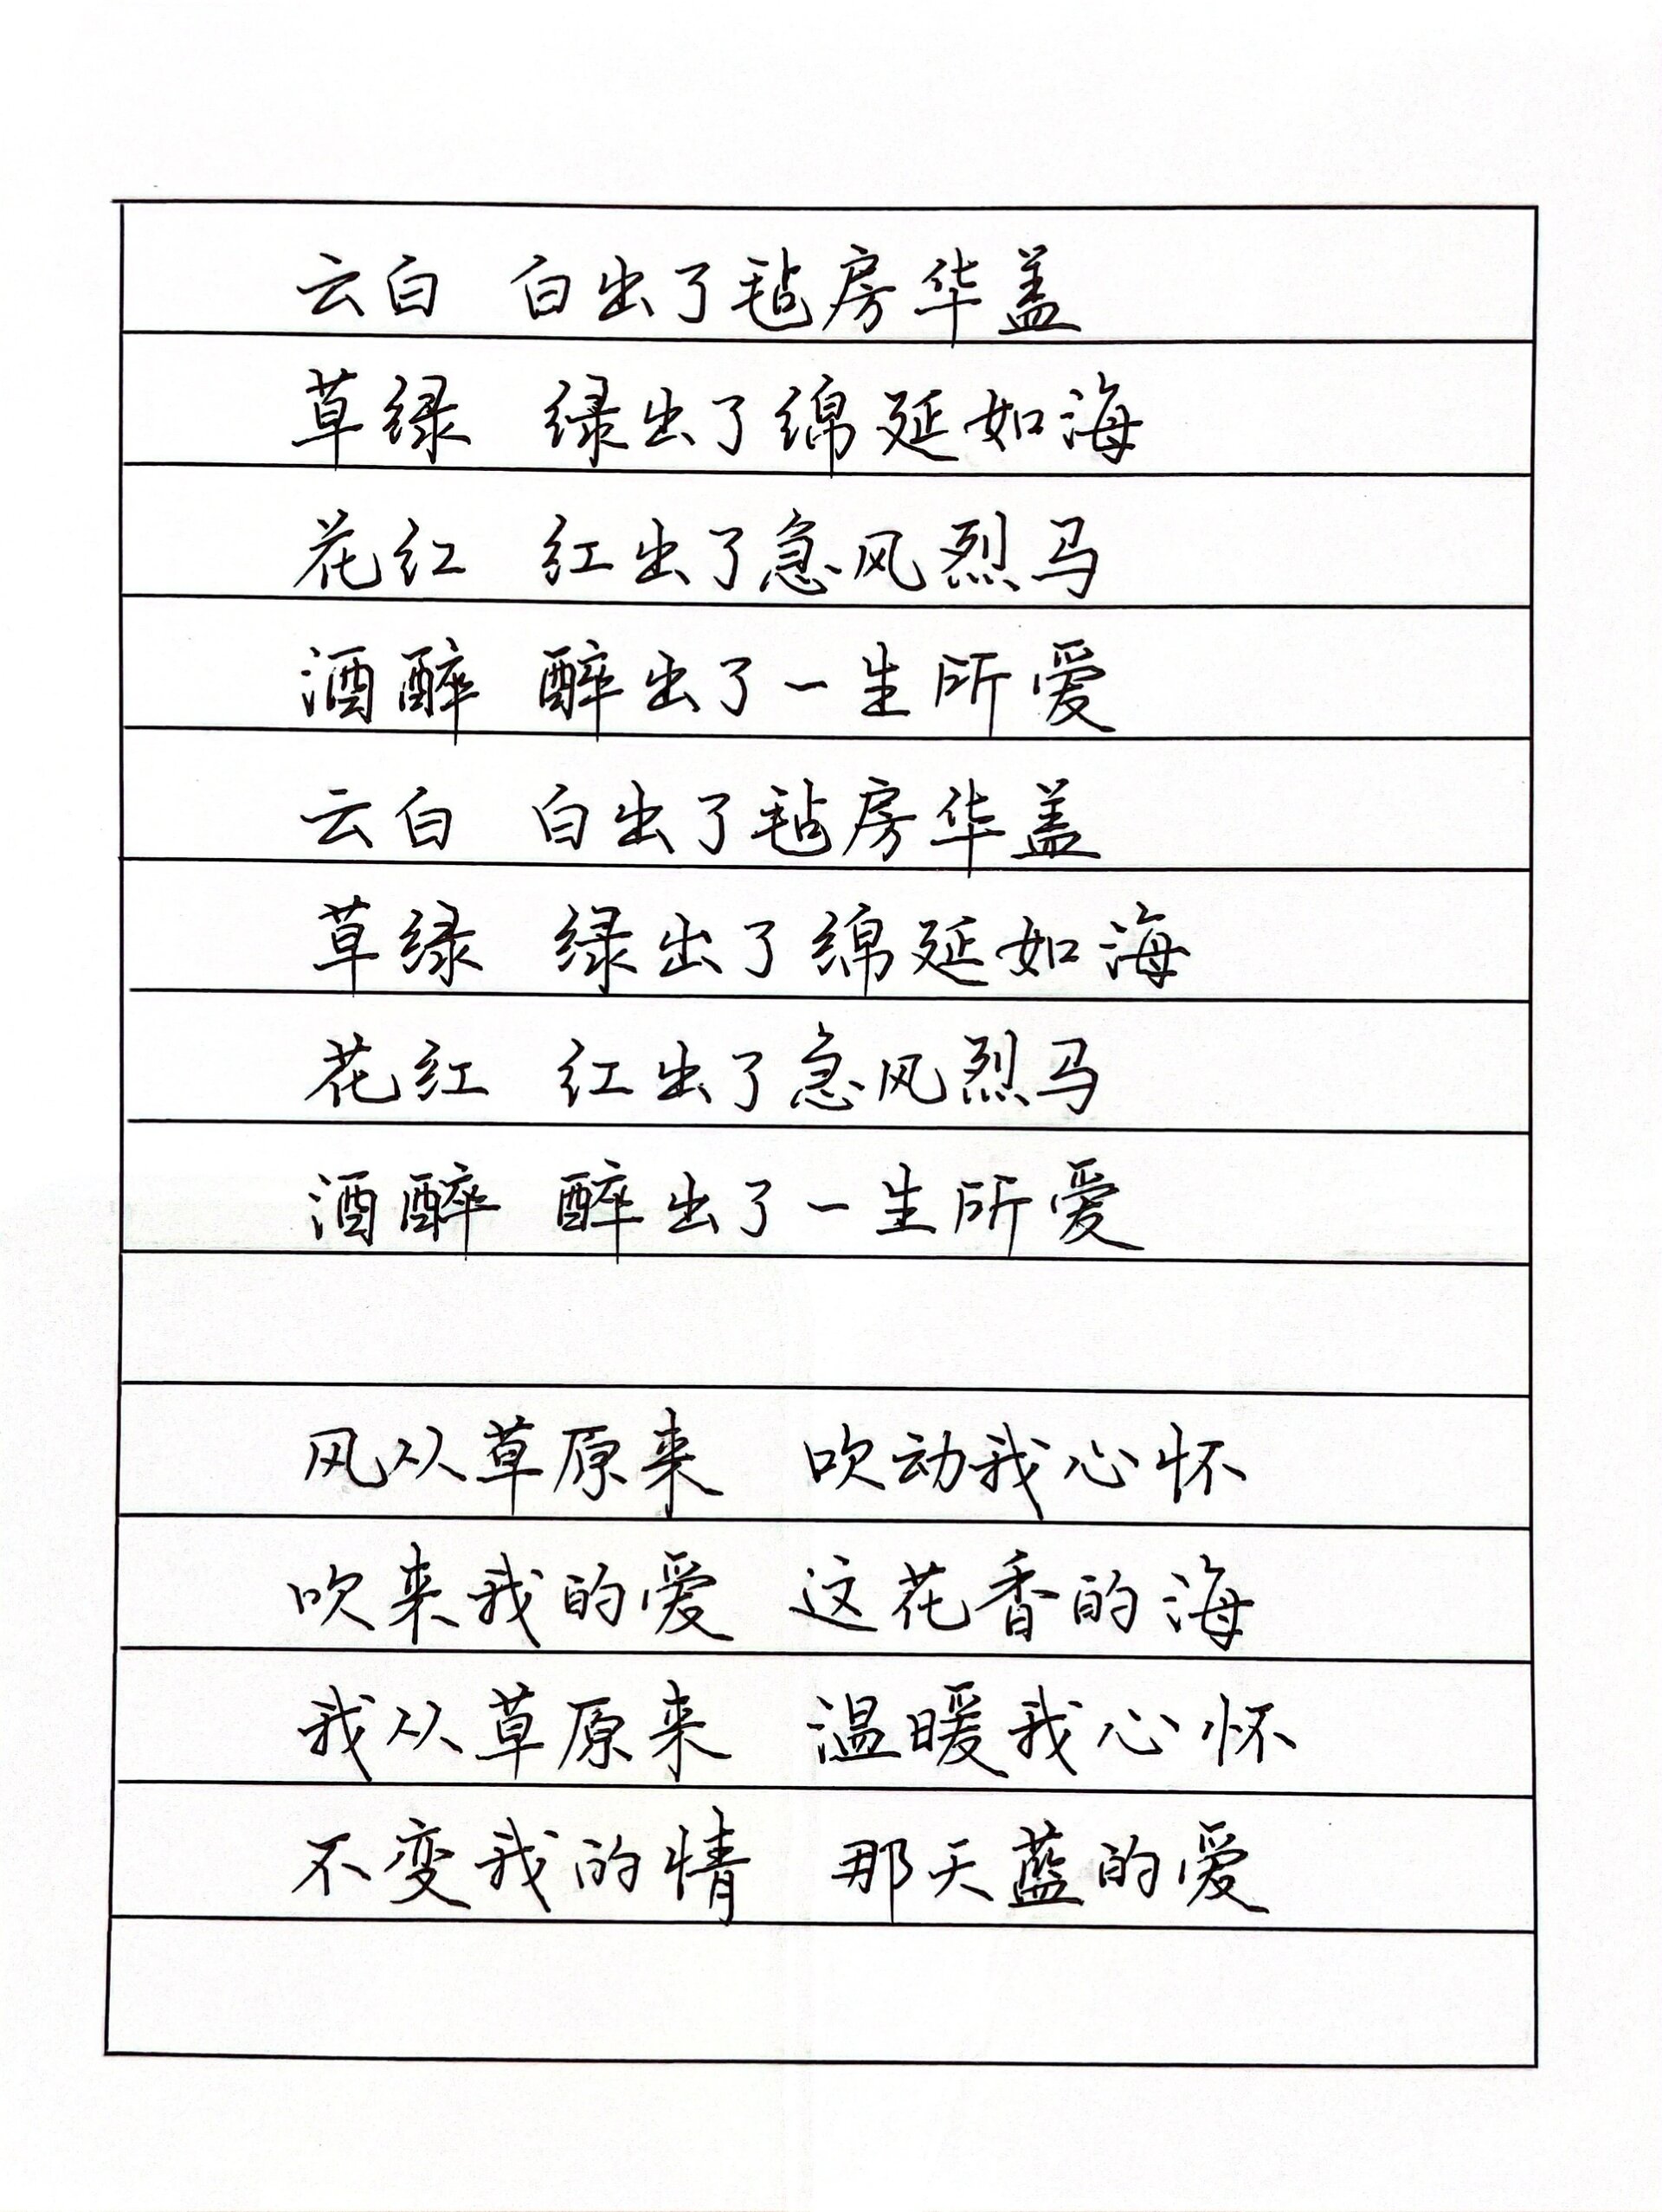 云白 白出了毡房华盖
草绿 绿出了绵延如海
花红 红出了急风烈马
酒醉 醉出了一生所爱
云白 白出了毡房华盖
草绿 绿出了绵延如海
花红 红出了急风烈马
酒醉 醉出了一生所爱
风从草原来 吹动我心怀
吹来我的爱 这花香的海
我从草原来 温暖我心怀
不变我的情 那天蓝的爱